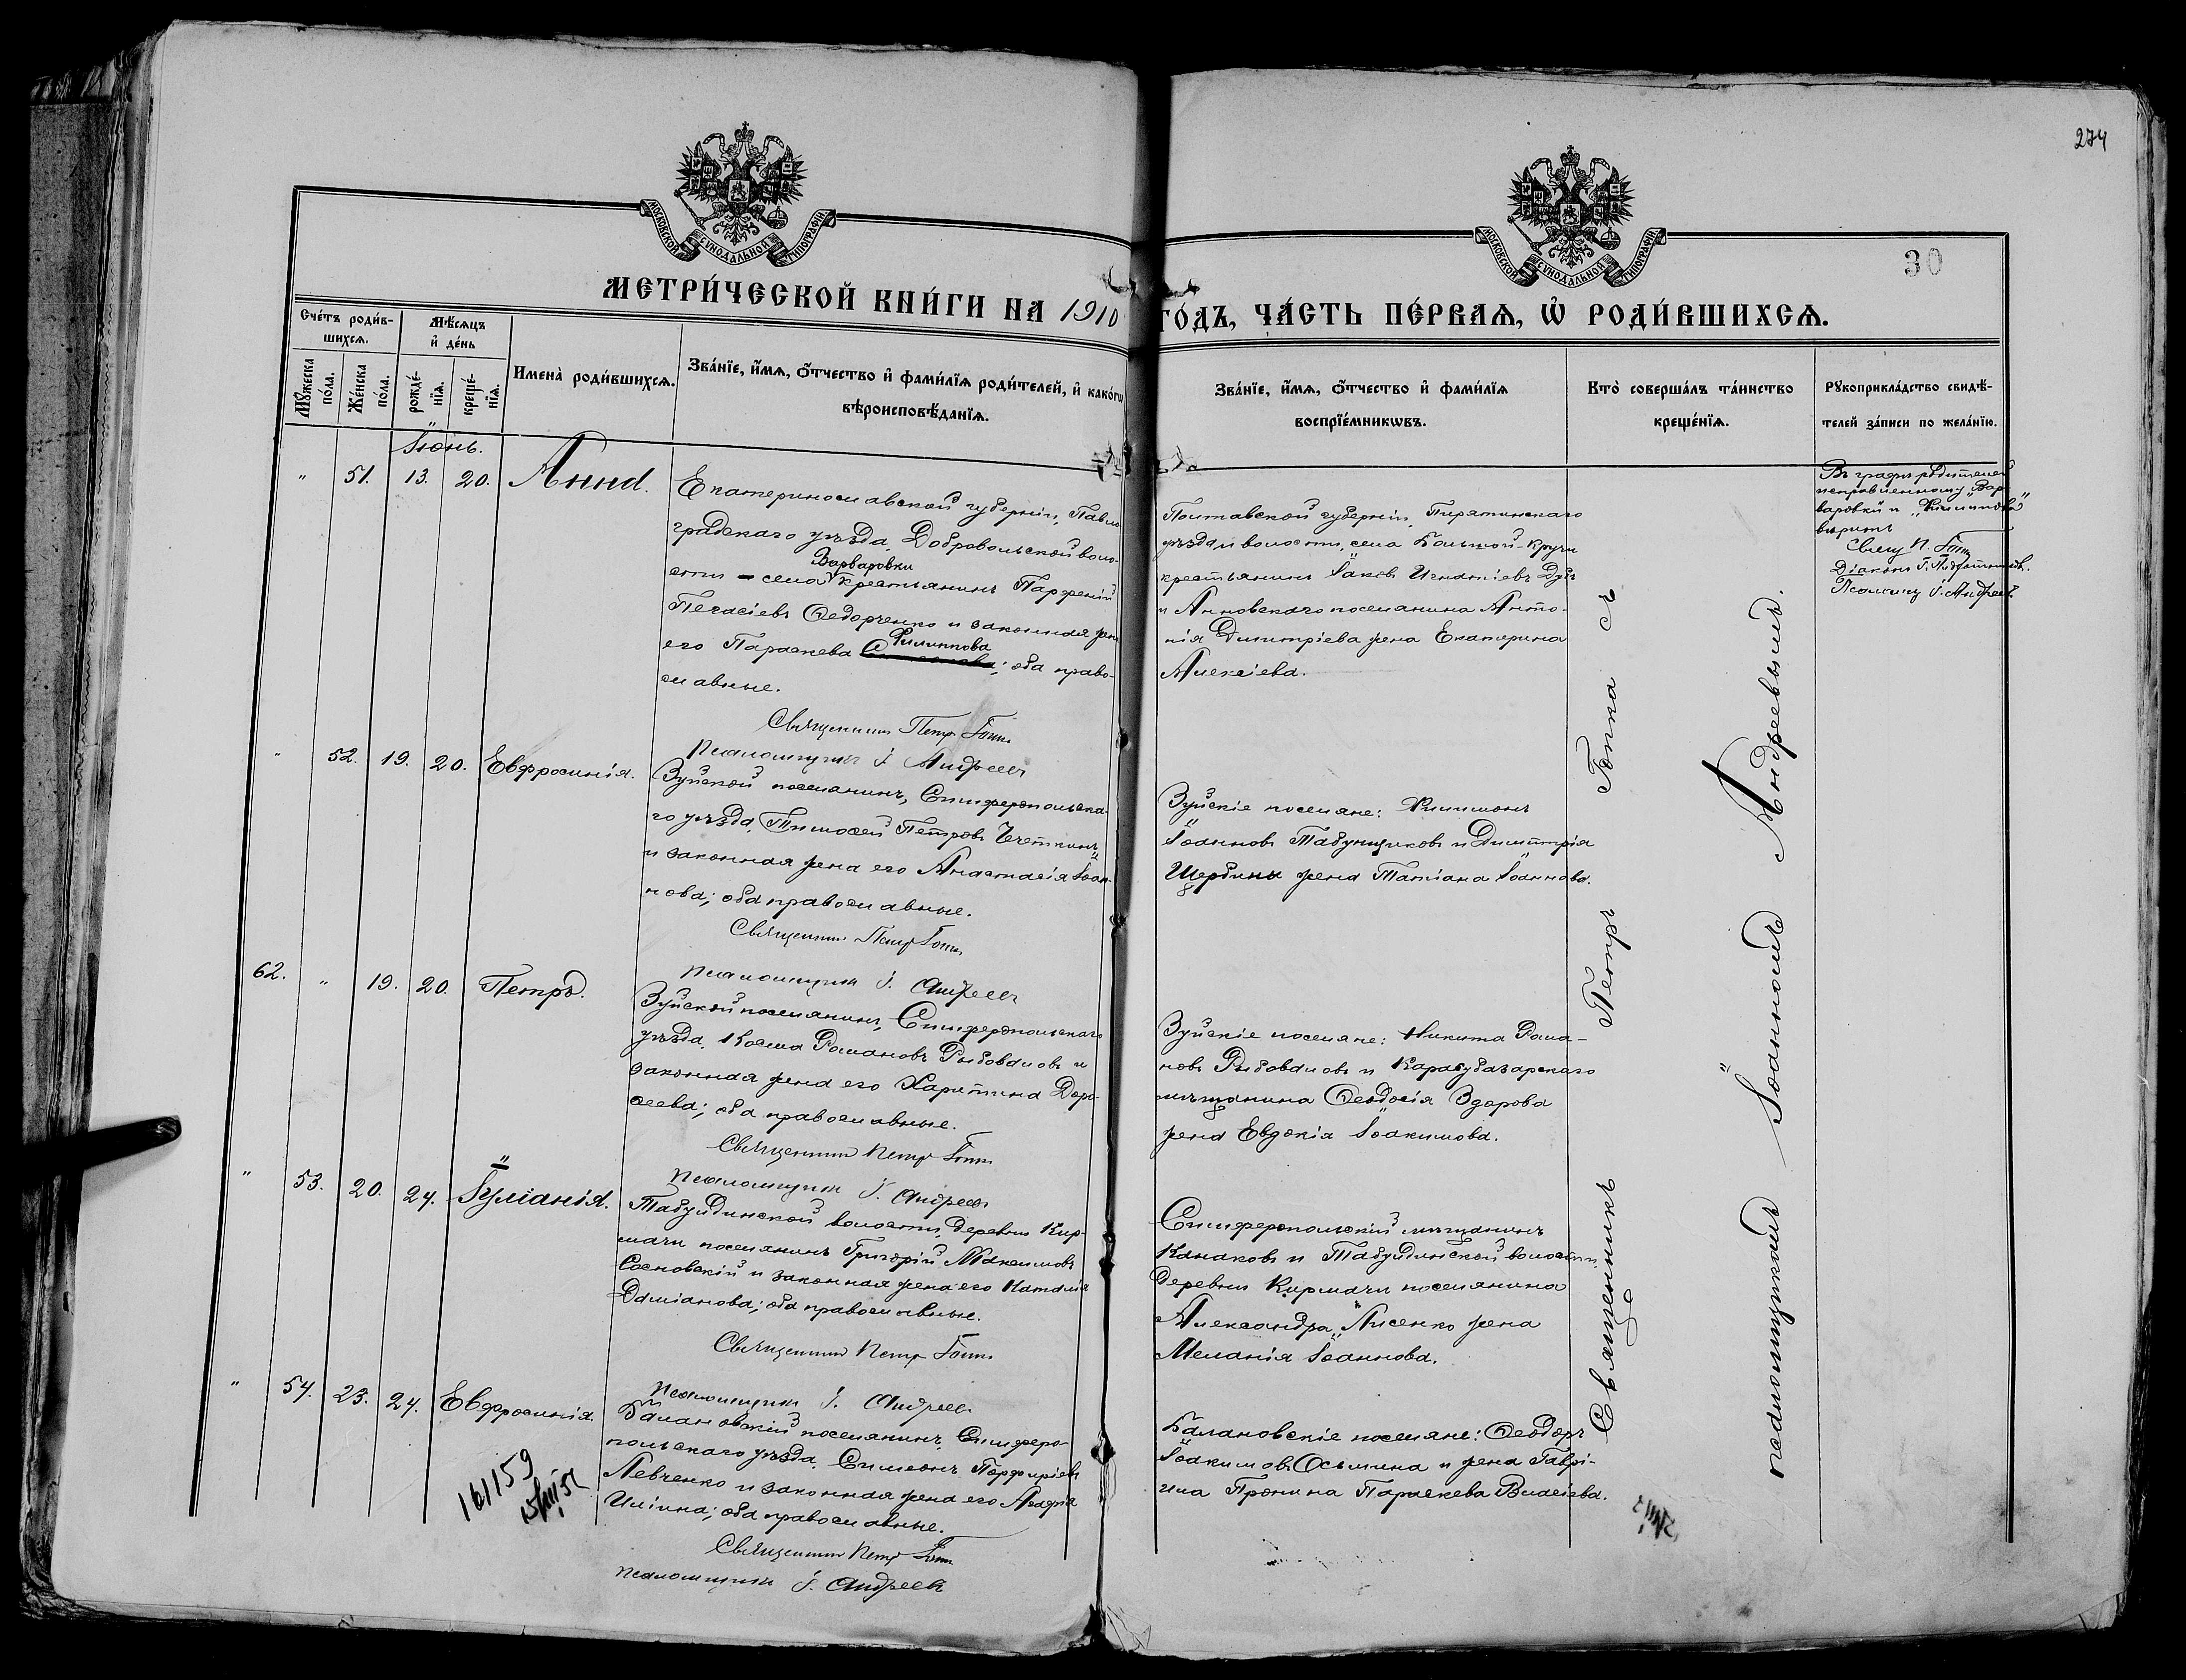 274
30
МОСКОВСКОЙ СѴНОДАЛЬНОЙ ТИПОГРАФІИ
МОСКОВСКОЙ СѴНОДАЛЬНОЙ ТИПОГРАФІИ
МЕТРИ́ЧЕСКОЙ КНИ́ГИ НА 1910 ГО́ДЪ, ЧА́СТЬ ПЕ́РВАѦ, Ѡ҆ РОДИ́ВШИХСѦ.
Сче́тъ роди́в-
шихсѧ.
Мꙋ́жеска по́ла.
Же́нска по́ла.
Мѣ́сѧцъ
и҆ де́нь
рожде́-
нїѧ.
креще́-
нїѧ.
Имена̀ роди́вшихсѧ.
Зва́нїе, и҆́мѧ, ѻ҆́тчество и҆ фами́лїѧ роди́телей, и҆ како́гѡ
вѣроисповѣ́данїѧ.
Зва́нїе, и҆́мѧ, ѻ҆́тчество и҆ фами́лїѧ
воспрїе́мникѡвъ.
Кто̀ соверша́лъ та́инство
креще́нїѧ.
Рꙋкоприкла́дство свидѣ́-
телей за́писи по жела́нїю.
Іюнь.
" 51. 13. 20. Анна.
Екатеринославской губерніи, Павло-
градскаго уѣзда, Добровольской воло-
сти – села Варваровки крестьянинъ Парфеній
Ѳедорченко и законная жена
его Параскева Филиппова; оба право-
славные.
Священникъ Петръ Гопка
Псаломщикъ І. Андреевъ
Полтавской губерніи, Пирятинскаго
уѣзда и волости, села Большой-Кручи
крестьянинъ Іаковъ Игнатіевъ
и Анновскаго поселянина Анто-
нія Димитріева жена Екатерина
Алексіева.
Въ графѣ родителей
исправленному „Вар-
варовки" и „Филиппова"
вѣрить
Свящ. П. Гопка
Діаконъ
Псаломщ. І. Андреевъ.
" 52. 19. 20. Евфросинія.
Зуйской поселянинъ, Симферопольска-
го уѣзда, Тимоѳей Петровъ Чечеткинъ
и законная жена его Анастасія Іоан-
нова; оба православные.
Священникъ Петръ Гопка
псаломщикъ І. Андреевъ
Зуйскіе поселяне: Филимонъ
Іоанновъ Табунщиковъ и Димитрія
Щербины жена Татіана Іоаннова.
62. " 19. 20. Петръ.
Зуйской поселянинъ, Симферопольскаго
уѣзда, Косма Романовъ Рыбоваловъ и
законная жена его Харитина Доро-
ѳеева; оба православные.
Священникъ Петръ Гопка
Псаломщикъ І. Андреевъ
Зуйскіе поселяне: Никита Рома-
новъ Рыбоваловъ и Карасубазарскаго
мѣщанина Ѳеодосія Здорова
жена Евдокія Іоакимова.
" 53. 20. 24. Іуліанія.
Табулдинской волости, деревни Кир-
мачи поселянинъ Григорій Максимовъ
Сосновскій и законная жена его Наталія
Даміанова; оба православные.
Священникъ Петръ Гопка
псаломщикъ І. Андреевъ
Симферопольскій мѣщанинъ
Канаковъ и Табулдинской волости
деревни Кирмачи поселянина
Александра Лисенко жена
Меланія Іоаннова.
" 54. 23. 24. Евфросинія.
Балановскій поселянинъ, Симферо-
польскаго уѣзда, Симеонъ Порфиріевъ
Левченко и законная жена его Агафія
Иліина; оба православные.
Священникъ Петръ Гопка
псаломщикъ І. Андреевъ
Балановскіе поселяне: Ѳеодоръ
Іоакимовъ Осьмина и жена Гаврі-
ила Пронина Параскева Власіева.
Священникъ Петръ Гопка съ
псаломщикомъ Іоанномъ Андреевымъ.
161159